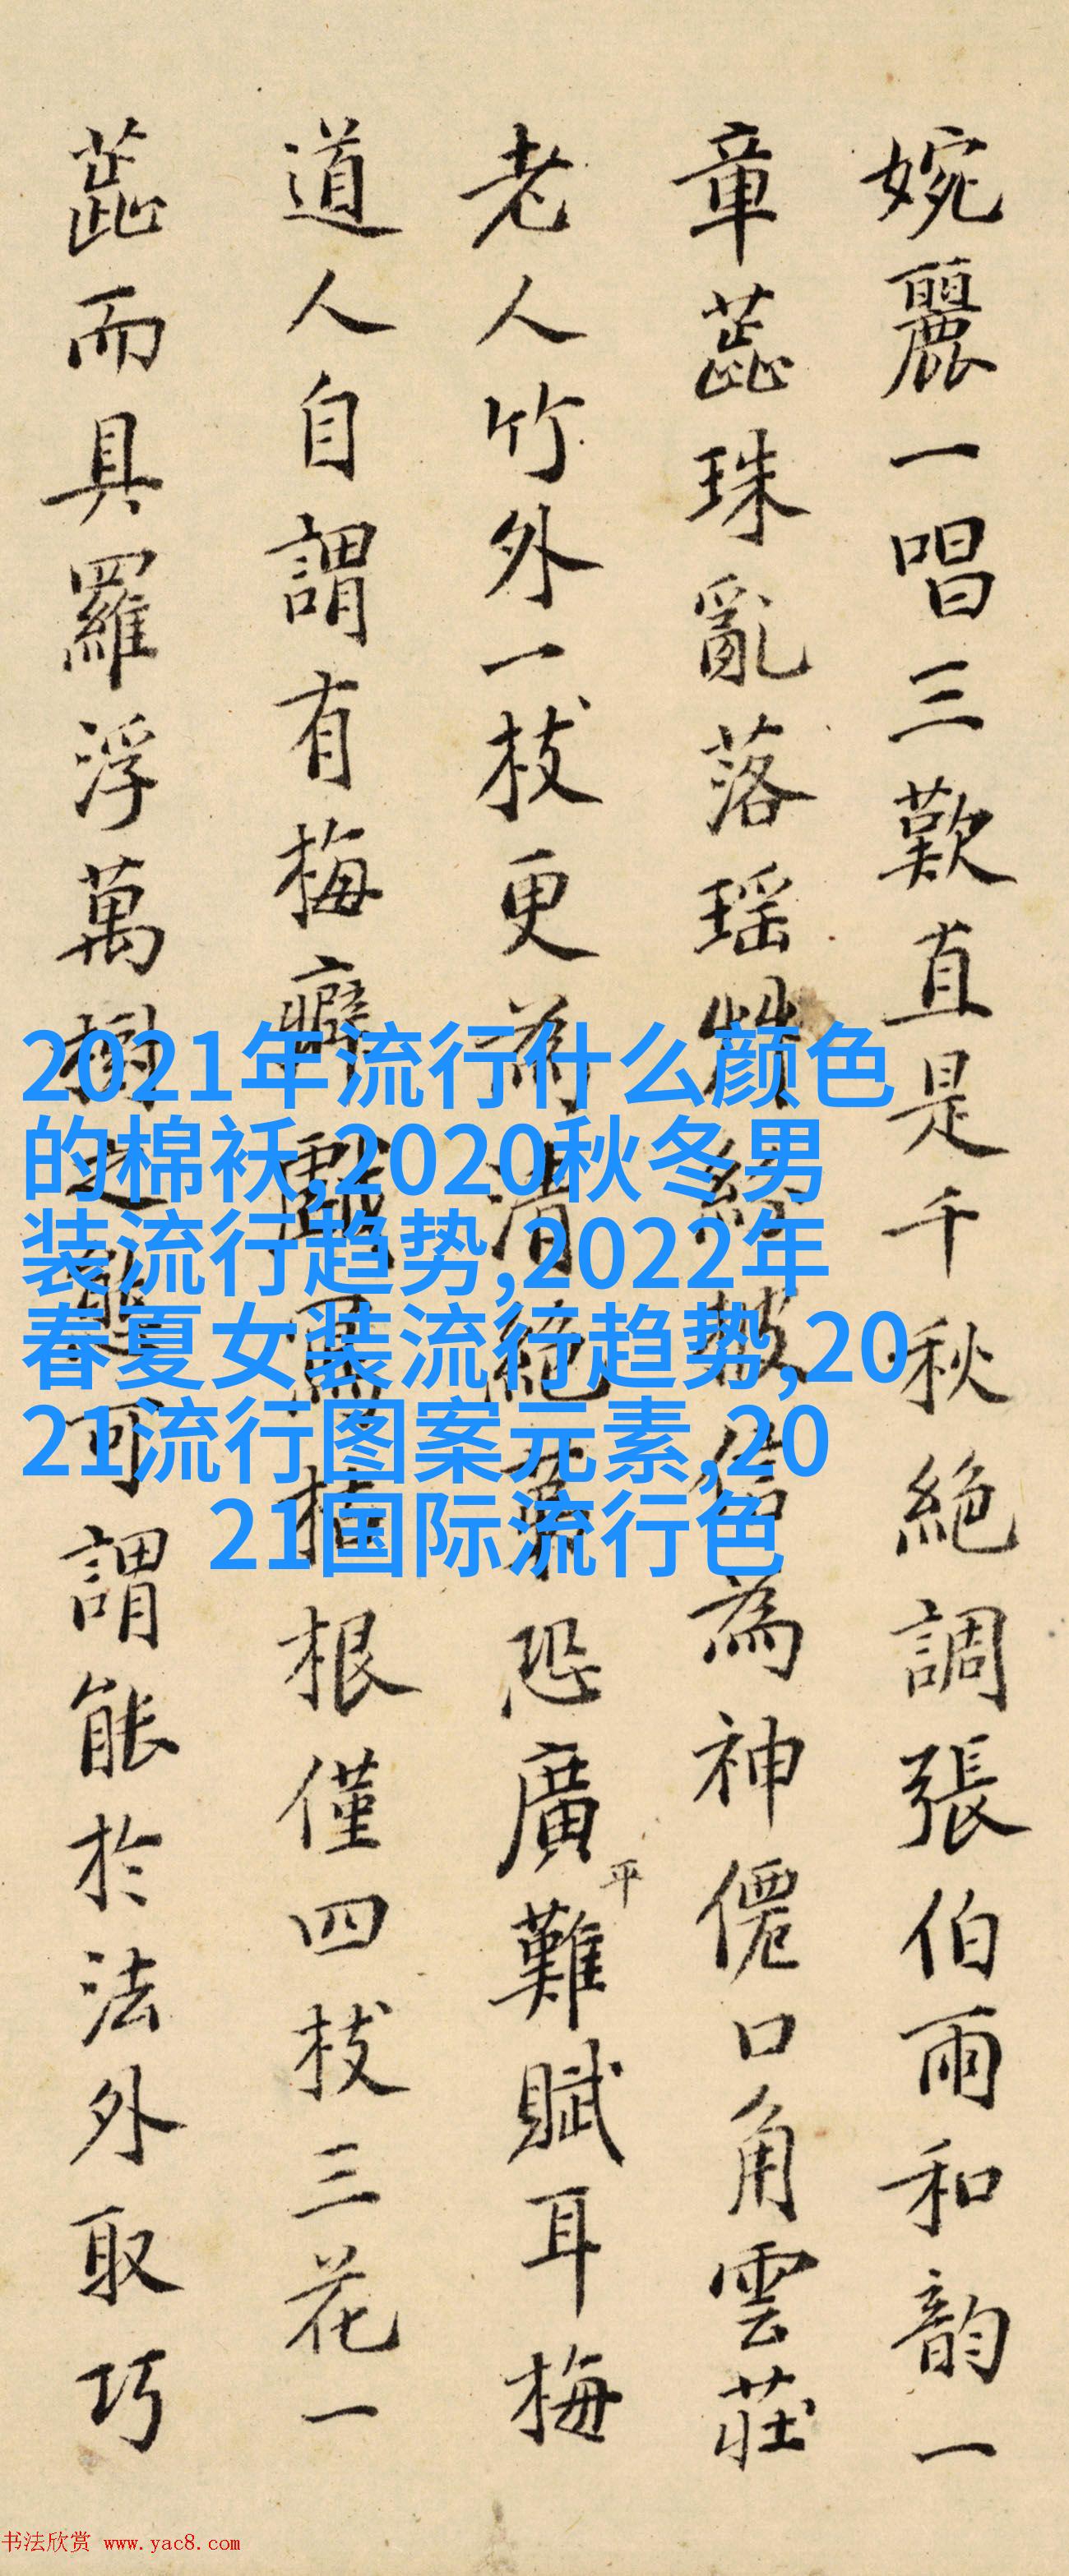 婉麗一唱三歎直是千秋絕調張伯雨和韵一
章蕋珠亂落瑶
為神僊口角雲莊
老人竹外一枝更為清絕
恐廣平難賦耳梅
道人自謂有梅癖戲
根僅四枝三花一
蕋而具羅浮萬樹之
可謂能於法外取巧
2021年流行什么颜色
的棉袄,2020秋冬男
装流行趋势,2022年
春夏女装流行趋势,20
21流行图案元素,20
21国际流行色
书法欣赏 www.yac8.com